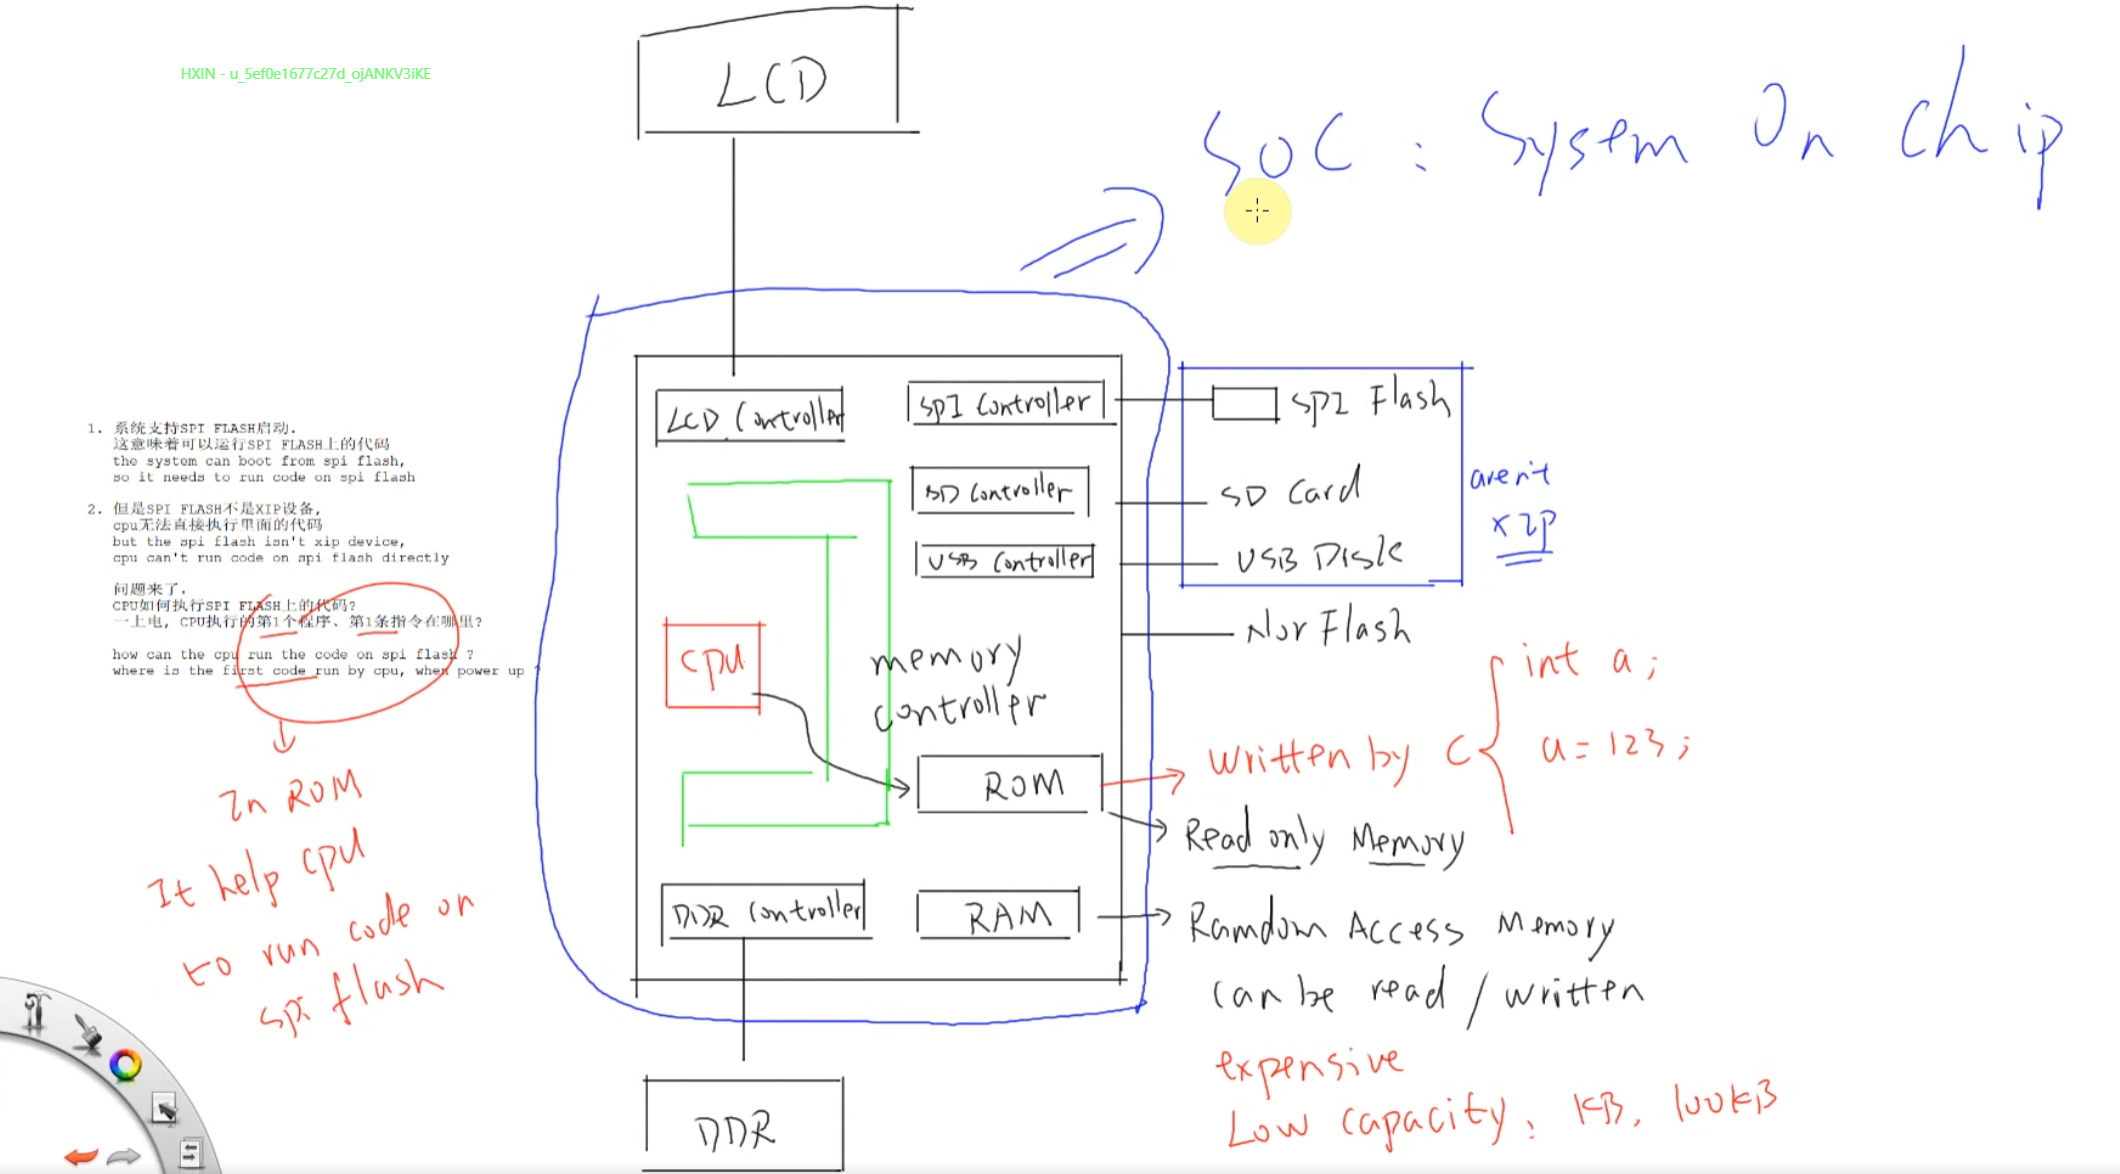 HXIN - u_5ef0e1677c27d_ojANKV3iKE
LCD
SOC : System On Chip
1. 系统支持SPI FLASH启动.
这意味着可以运行SPI FLASH上的代码
the system can boot from spi flash,
so it needs to run code on spi flash
2. 但是SPI FLASH不是XIP设备,
cpu无法直接执行里面的代码
but the spi flash isn't xip device,
cpu can't run code on spi flash directly
问题来了,
CPU如何执行SPI FLASH上的代码?
一上电, CPU执行的第1个程序、第1条指令在哪里?
how can the cpu run the code on spi flash ?
where is the first code run by cpu, when power up ?
In ROM
It help cpu
to run code on
spi flash
LCD Controller
SPI Controller
SD Controller
USB Controller
cpu
memory
controller
ROM
DDR Controller
RAM
DDR
SPI Flash
SD Card
USB Disk
aren't
XIP
Nor Flash
written by C
int a;
a = 123;
Read only Memory
Ramdom Access Memory
can be read / written
expensive
Low capacity: KB, 100KB